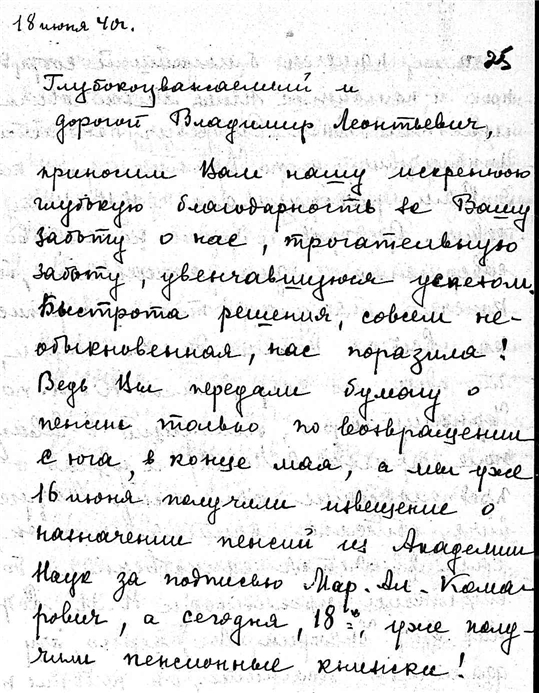 18 июня 40г.
25
Глубокоуважаемый и
дорогой Владимир Леонтьевич,
приносим Вам нашу искреннюю
глубокую благодарность за Вашу
заботу о нас, трогательную
заботу, увенчавшуюся успехом.
Быстрота решения, совсем не-
обыкновенная, нас поразила!
Ведь Вы передали бумагу о
пенсии только по возвращении
с юга, в конце мая, а мы уже
16 июня получили извещение о
назначении пенсий из Академии
Наук за подписью Мар. Ал. Кома-
рович, а сегодня, 18го, уже полу-
чили пенсионные книжки!